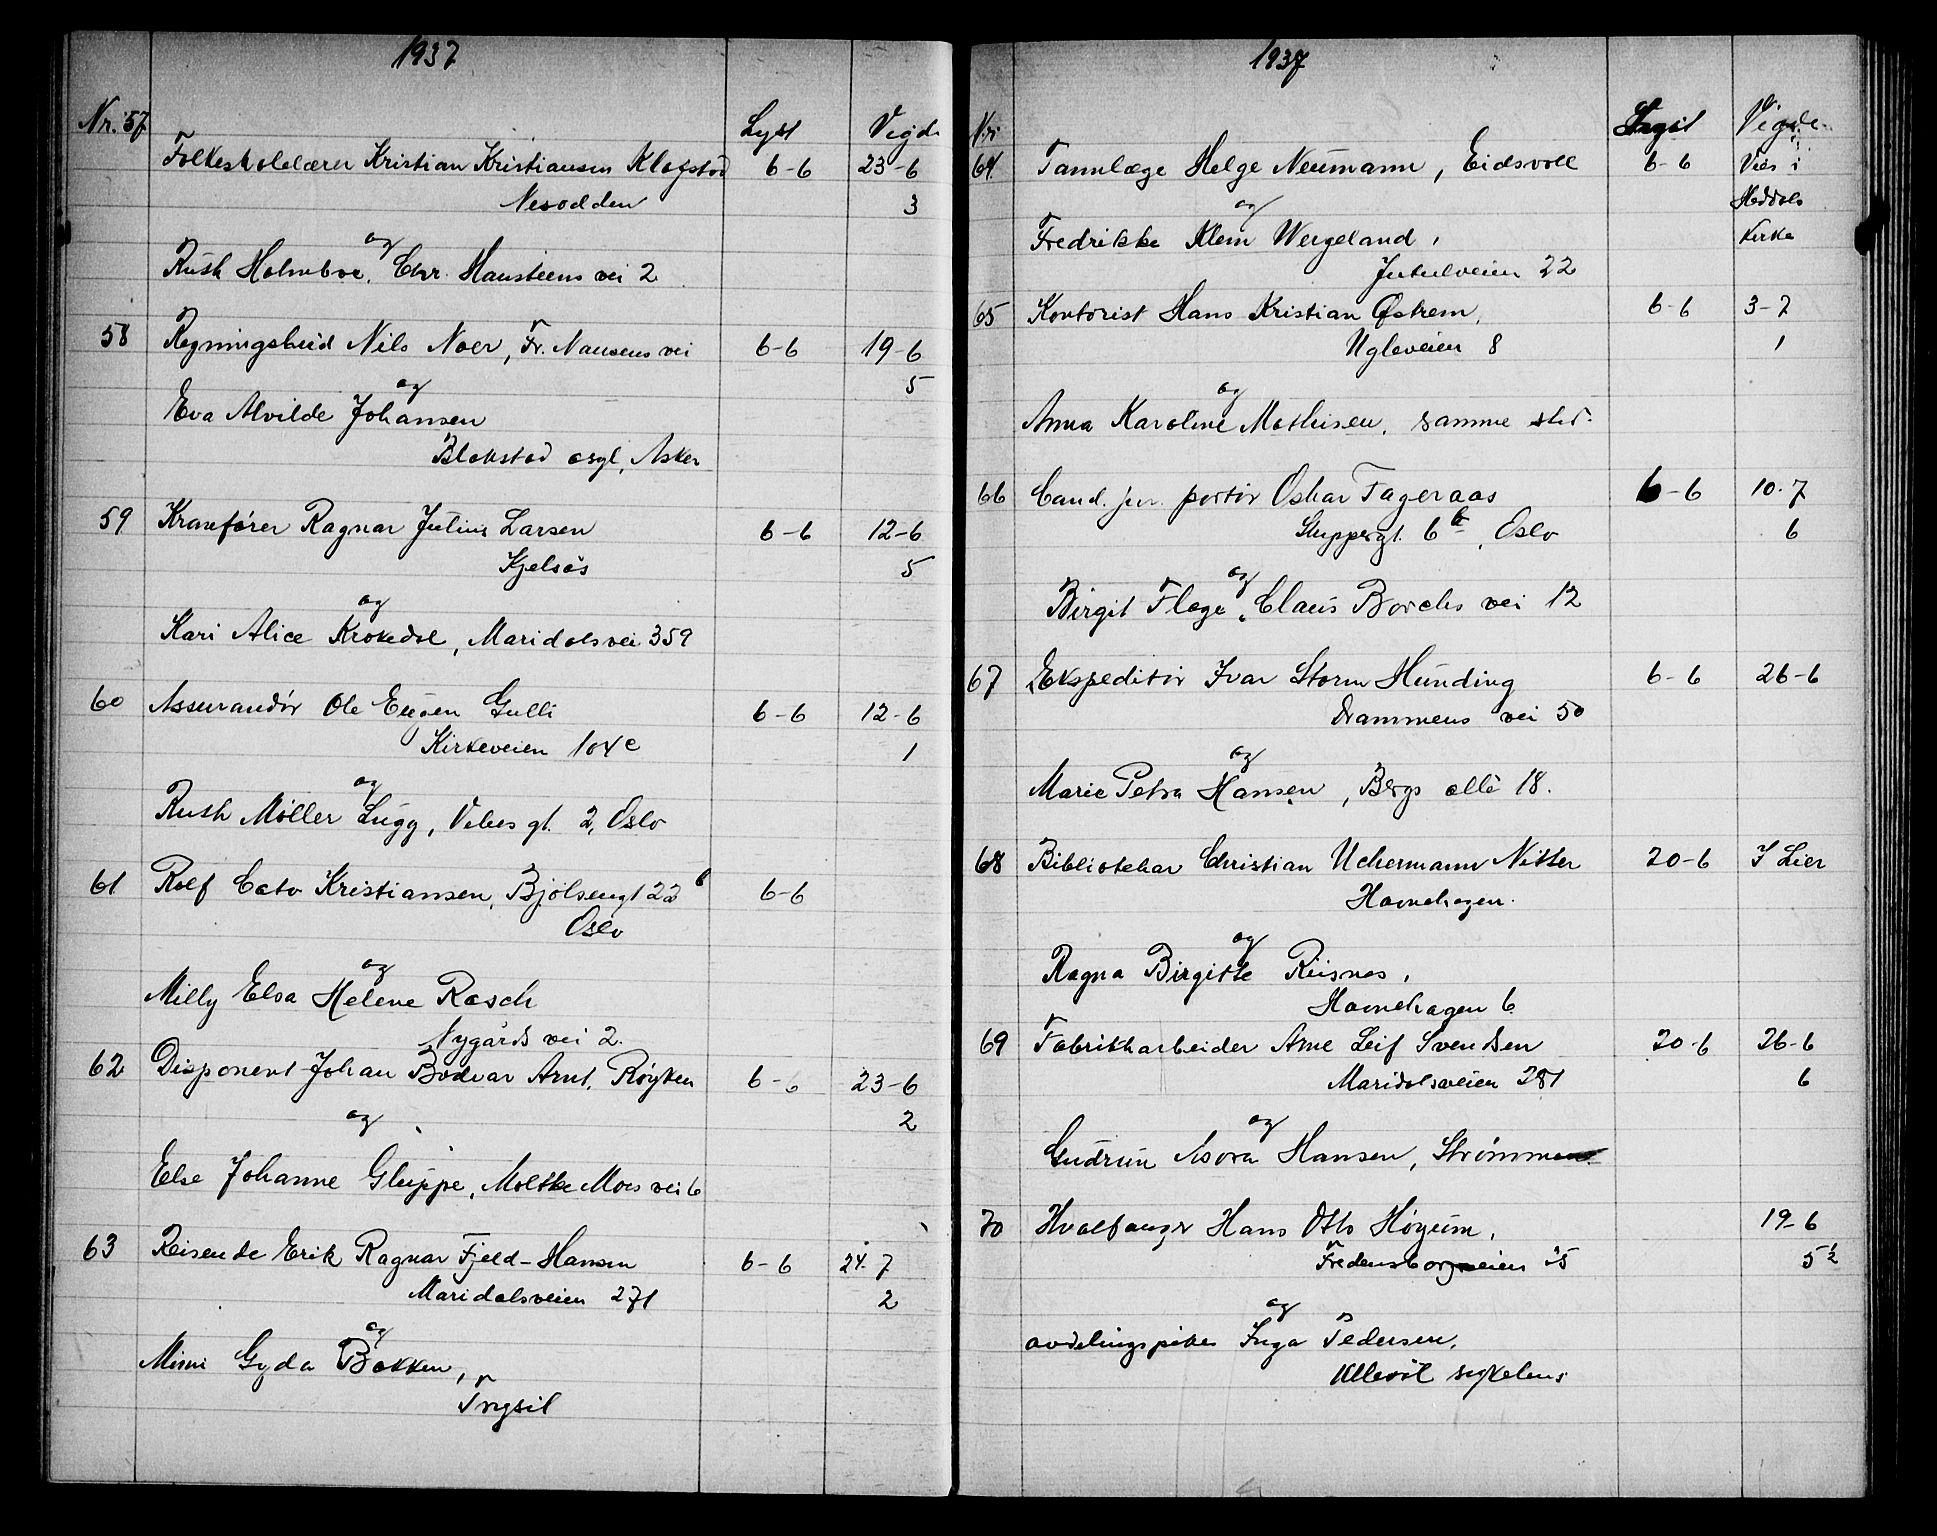 1937
Nr. 57 Lyst Vigde
Folkeskolelærer Kristian Kristiansen Klafstad 6-6 23-6
Nesodden 3
og
Ruth Holmboe, Chr. Hansteens vei 2
58 Regningsbud Nils Noer, Fr. Nansens vei 6-6 19-6
og 5
Eva Alvilde Johansen
Blakstad asyl, Asker
59 Kranfører Ragnar Julius Larsen 6-6 12-6
Kjelsås 5
og
Kari Alice Krokedal, Maridalsvei 359
60 Assurandør Ole Eugen Gulli 6-6 12-6
Kirkeveien 104c 1
og
Ruth Møller Lugg, Vibes gt. 2, Oslo
61 Rolf Cato Kristiansen, Bjølsengt 22b 6-6
Oslo
og
Milly Elsa Helene Rasch
Nygårds vei 2.
62 Disponent Johan Bødvar Arnt, Røyken 6-6 23-6
og 2
Else Johanne Gluppe, Moltke Moes vei 6
63 Reisende Erik Ragnar Fjeld-Hansen 6-6 24-7
Maridalsveien 271 2
og
Mimi Gyda Bakken,
Trysil
1937
Nr. Lyst Vigde
64. Tannlæge Helge Neumann, Eidsvoll 6-6 Vies i
og Heddals
Fredrikke Klem Wergeland, kirke
Jutulveien 22
65 Kontorist Hans Kristian Østrem, 6-6 3-7
Ugleveien 8 1
og
Anna Karoline Mathisen, samme sted.
66 Cand. jur. portør Oskar Fageraas 6-6 10-7
Steppesgt. 6b, Oslo 6
og
Birgit Flage, Claus Borchs vei 12
67 Ekspeditør Ivar Storm Hunding 6-6 26-6
Drammens vei 50
og
Marie Petra Hansen, Bergs allé 18.
68 Bibliotekar Christian Uchermann Nitter 20-6 I Lier
Havnehagen.
og
Ragna Birgitte Riisnes,
Havnehagen 6
69 Fabrikkarbeider Arne Leif Svendsen 20-6 26-6
Maridalsveien 281 6
og
Gudrun Asora Hansen, Strømmen
70 Hvalfanger Hans Otto Høyum, 19-6
Fredensborgveien 35 5½
og
avdelingspike Inga Pedersen,
Ullevål sykehus